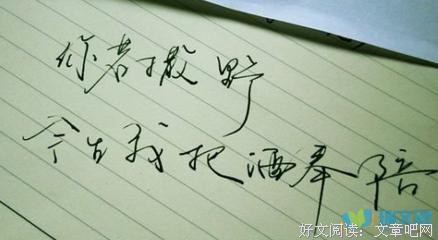 你若撒野
今生我把酒奉陪
好文阅读：文章吧网